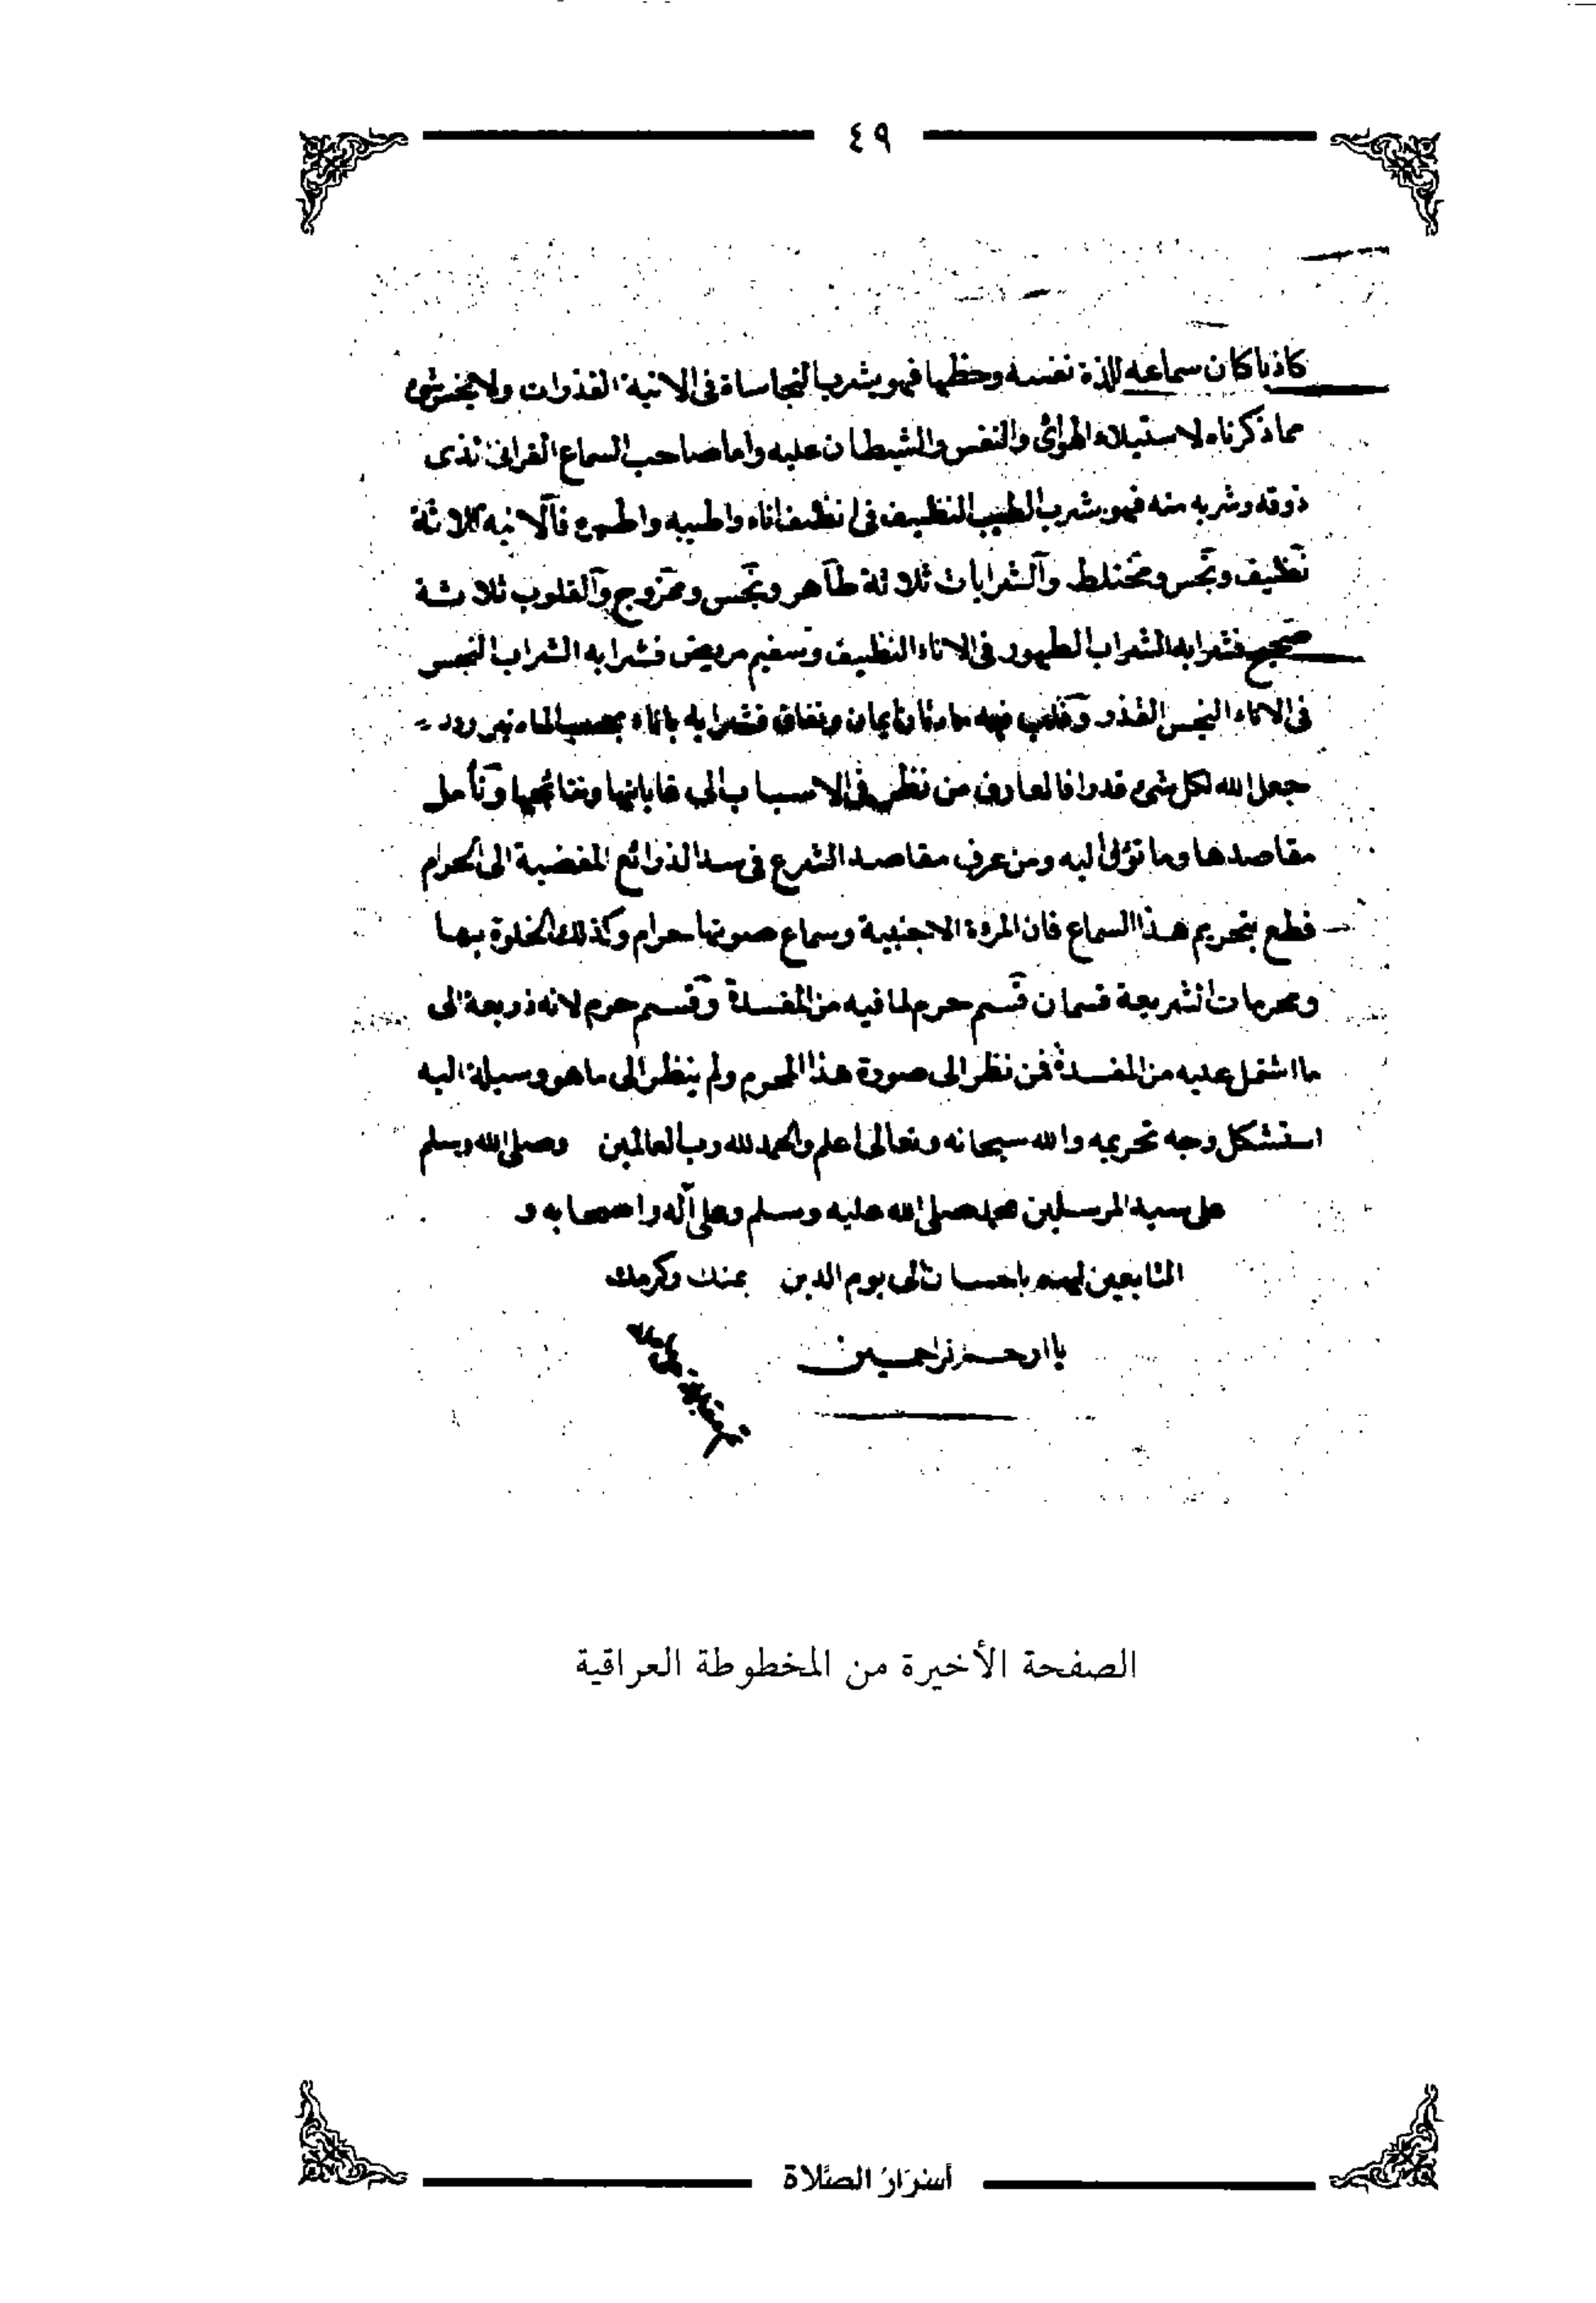 ٤٩
كاذبا كان سماعه للذة نفسه وحظها فهو يشرب النجاساة فى الانية القذرات ولا
مما ذكرناه لاستيلاء الهوائ والنفس والشيطان عليه واما صاحب السماع القرانى
ذوقه وشربه منه فهو يشرب الطيب النظيف فى انظف اناء واطيبه واطهره فآلانيه ثلاثة
نظيف ونجس ومختلط والشرابات ثلاثة طاهر ونجس وممزوج والقلوب ثلاثة
صحيح فشرابه الشراب الطهور فى الاناء النظيف وسقيم مريض فشرابه الشراب النجس
فى الاناء النجس القذر وقلب فيه مادتان ايمان ونفاق فشرابه باناء بحسب الماد تين وقد
جعل الله لكل شئ قدرا فالعارف من نظر فى الاسباب الى غاياتها ونتائجها وتأمل
مقاصدها وما تؤل اليه ومن عرف مقاصد الشرع فى سد الذرائع المفضية الى الحرام
قطع بتحريم هذا السماع فان المروة الاجنبية وسماع صوتها حرام وكذلك الخلوة بها
ومحرمات الشريعة قسمان قسم حرم لما فيه من المفسدة وقسم حرم لانه ذريعة الى
ما اشتمل عليه من المفسدة فمن نظر الى صورة هذا المحرم ولم ينظر الى ما هو وسيلة اليه
استشكل وجه تحريمه والله سبحانه وتعالى اعلم والحمد لله رب العالمين وصلى الله وسلم
على سيد المرسلين محمد صلى الله عليه وسلم وعلى آله واصحابه و
التابعين لهم باحسان الى يوم الدين بمنك وكرمك
ياارحم الراحمين
الصفحة الأخيرة من المخطوطة العراقية
أسْرَارُ الصَّلاة